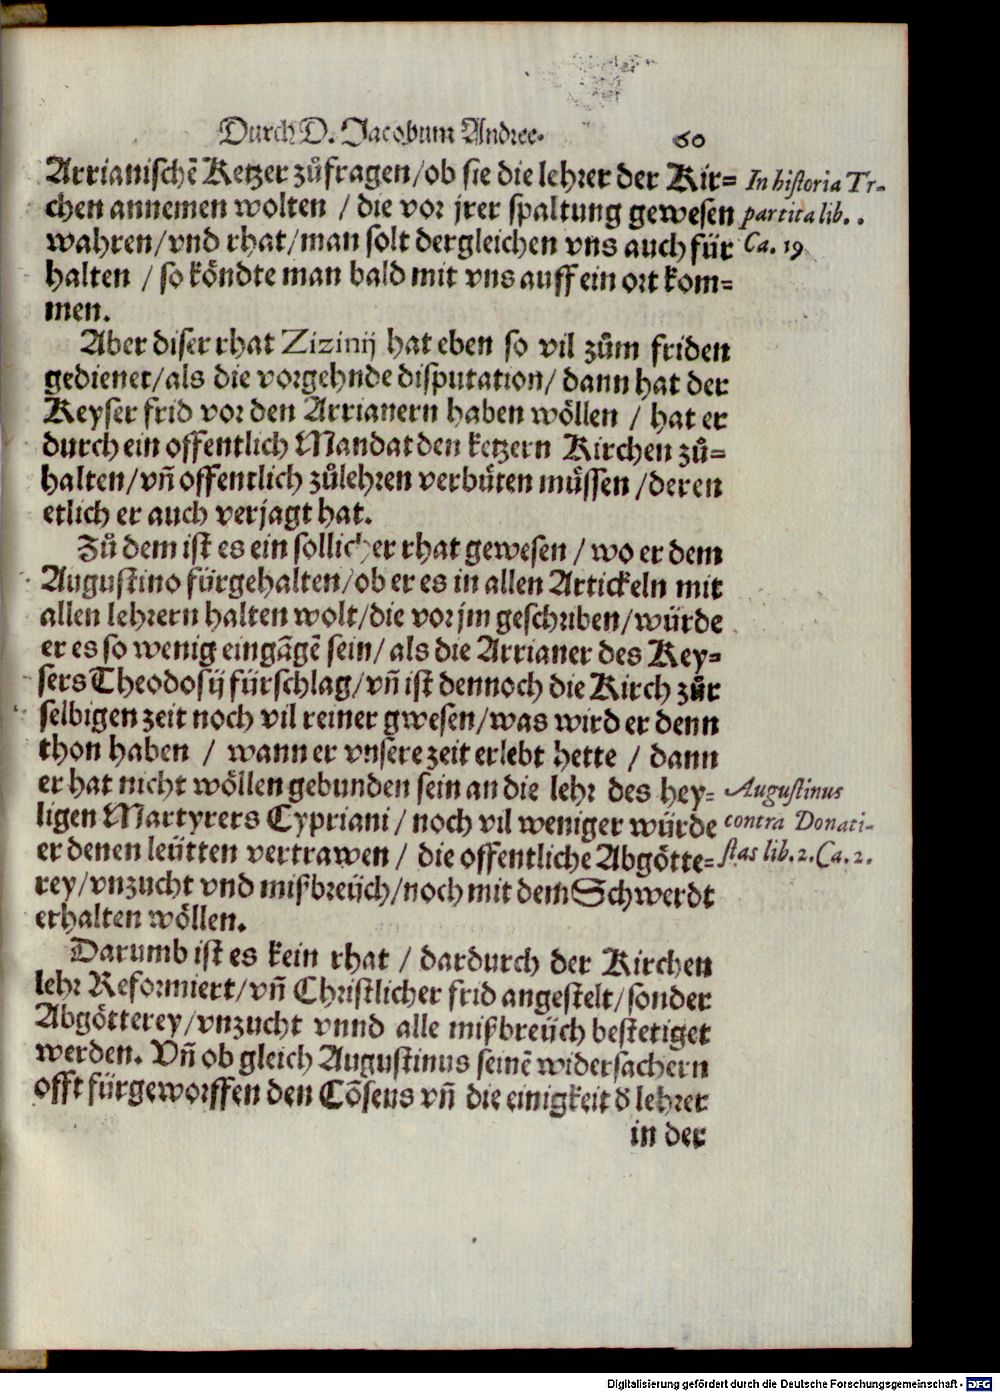 Durch D. Jacobum Andree.
60
Arrianischē Ketzer zůfragen/ob sie die lehrer der Kir=
chen annemen wolten / die vor jrer spaltung gewesen
wahren/vnd rhat/man solt dergleichen vns auch für
halten / so köndte man bald mit vns auff ein ort kom=
men.
In historia Tr-
partita lib. .
Ca. 19
Aber diser rhat Zizinij hat eben so vil zům friden
gedienet/als die vorgehnde disputation/ dann hat der
Keyser frid vor den Arrianern haben wöllen / hat er
durch ein offentlich Mandat den ketzern Kirchen zů=
halten/vñ offentlich zůlehren verbüten müssen /deren
etlich er auch verjagt hat.
Zů dem ist es ein sollicher rhat gewesen / wo er dem
Augustino fürgehalten/ob er es in allen Artickeln mit
allen lehrern halten wolt/die vor jm geschriben/würde
er es so wenig eingāgē sein/ als die Arrianer des Key=
sers Theodosij fürschlag/vñ ist dennoch die Kirch zůr
selbigen zeit noch vil reiner gwesen/was wird er denn
thon haben / wann er vnsere zeit erlebt hette / dann
er hat nicht wöllen gebunden sein an die lehr des hey=
ligen Martyrers Cypriani / noch vil weniger würde
er denen leütten vertrawen / die offentliche Abgötte=
rey/vnzucht vnd mißbreüch/noch mit dem Schwerdt
erhalten wöllen.
Augustinus
contra Donati-
stas lib. 2. Ca. 2.
Darumb ist es kein rhat / dardurch der Kirchen
lehr Reformiert/vñ Christlicher frid angestelt/sonder
Abgötterey/vnzucht vnnd alle mißbreüch bestetiget
werden. Vñ ob gleich Augustinus seinē widersachern
offt fürgeworffen den Cōsens vñ die einigkeit d̕ lehrer
in der
Digitalisierung gefördert durch die Deutsche Forschungsgemeinschaft - DFG